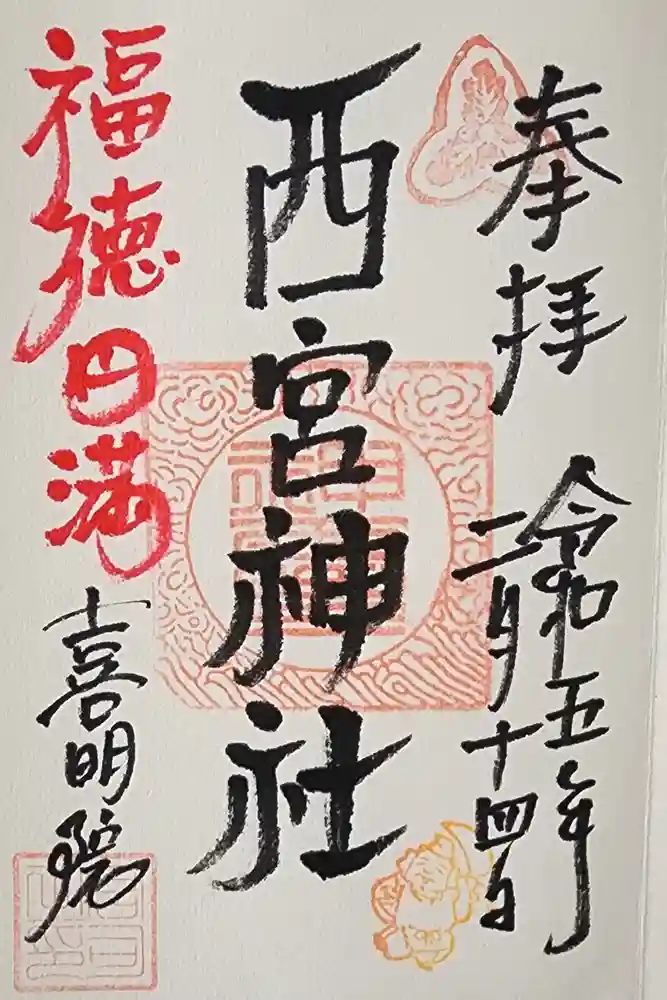 奉拝
令和五年
二月十四日
西宮神社
福徳円満
喜明